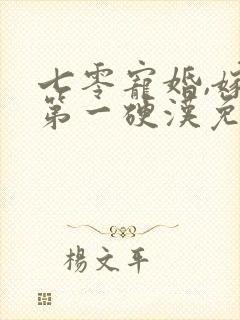 七零寵婚,嫁
第一硬漢免
楊文平